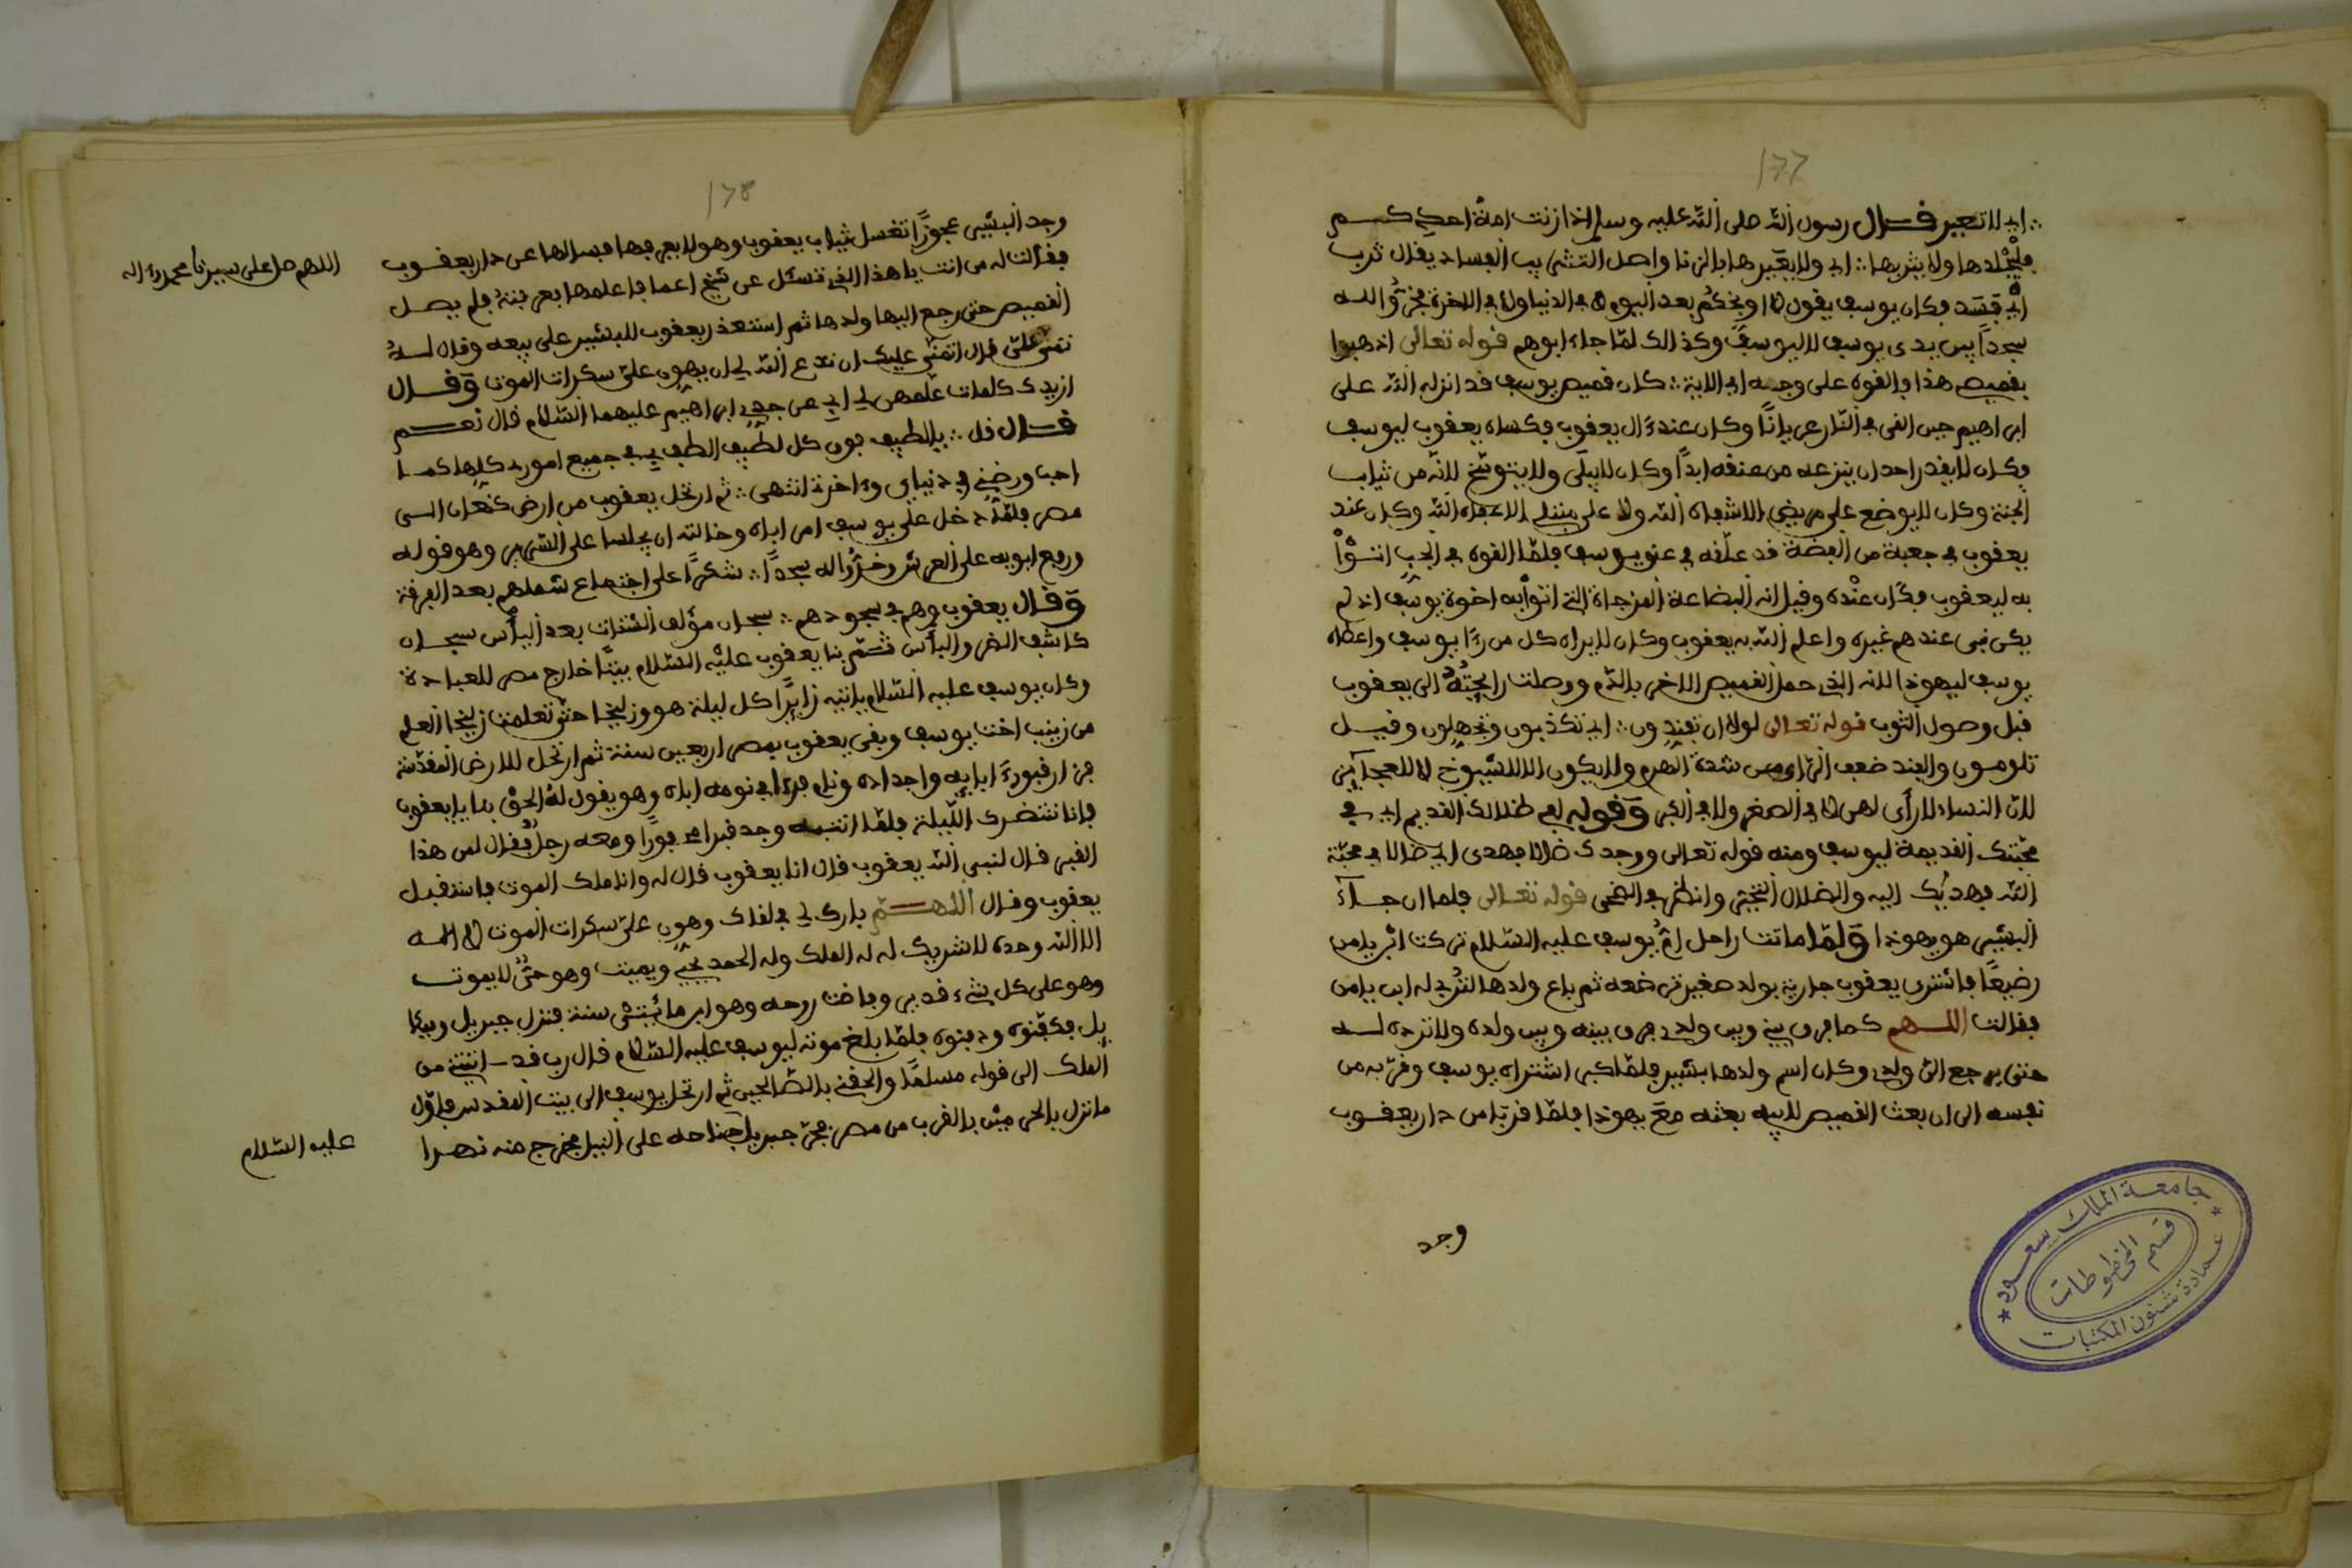 ١٧٧
اى لا تعيير قال رسول الله صلى الله عليه وسلم اذا زنت امة احدكم
فليجلدها ولا يثربها اى ولا يعيرها بالزنا واصل التثريب الفساد يقال ثرب
اى فسد فكان يوسف يقول لا اوبخكم بعد اليوم لا فى الدنيا ولا فى الاخرة فخروا له
سجدا بين يدى يوسف لا ليوسف وكذالك لما جاء ابوهم قوله تعالى اذهبوا
بقميصى هذا فالقوه على وجه ابى الاية كان قميص يوسف قد انزله الله على
ابراهيم حين القى فى النار عريانا وكان عند ءال يعقوب فكساه يعقوب ليوسف
فكان لا يقدر احد ان ينزعه من عنقه ابدا وكان لا يبلى ولا يتوسخ لانه من ثياب
الجنة وكان لا يوضع على مريض الا شفاه الله ولا على مبتلى الا عافاه الله وكان عند
يعقوب فى جعبة من الفضة قد علقه فى عنق يوسف فلما القوه فى الجب اتوا
به ليعقوب فكان عنده وقيل انه البضاعة المزجاة التى اتوا به اخوة يوسف اذ لم
يكن شى عندهم غيره واعلم الله به يعقوب وكان لا يراه كل من رءا يوسف واعطاه
يوسف ليهوذا لانه الذى حمل القميص الاخر بالدم ووصلت رايحته الى يعقوب
قبل وصول الثوب قوله تعالى لولا ان تفندون اى تكذبون وتجهلون وقيل
تلومون والفند ضعف الراى من شدة الهرم ولا يكون الا للشيوخ لا للعجايز
لان النساء لا رأى لهن لا فى الصغر ولا فى الكبر وقوله لفى ظلالك القديم اى فى
محبتك القديمة ليوسف ومنه قوله تعالى ووجدك ضالا فهدى اى ضالا فى محبة
الله فهديك اليه والضلال التحير وانظر فى الضحى قوله تعالى فلما ان جاء
البشير هو يهوذا ولما ماتت راحل ام يوسف عليه السلام تركت ابن يامن
رضيعا فاشترى يعقوب جارية بولد صغير ترضعه ثم باع ولدها لتربى له ابن يامن
فقالت اللهم كما فرق بينى وبين ولدى فرق بينه وبين ولده ولا ترده له
حتى يرجع الى ولدى وكان اسم ولدها بشير فلما كبر اشتراه يوسف وقربه من
نفسه الى ان بعث القميص لابيه بعثه مع يهوذا فلما قربا من دار يعقوب
وجد
جامعة الملك سعود
قسم المخطوطات
عمادة شئون المكتبات
١٧٨
وجد البشير عجوزا تغسل ثياب يعقوب وهو لا يعرفها فسالها عن دار يعقوب
فقالت له من انت يا هذا الذى تسئل عن شيخ اعما فاعلمها بعرفته فلم يصل
القميص حتى رجع اليها ولدها ثم استعذر يعقوب للبشير على بيعه وقال له
تمنى على قال اتمنى عليك ان تدع الله لى ان يهون على سكرات الموت وقال
ازيدك كلمات علمهن لى ابى عن جدى ابراهيم عليهما السلام قال نعم
قال قل يالطيف فوق كل لطيف الطف بى فى جميع امورى كلها كما
احب ورضنى فى دنياى وءاخرتى انتهى ثم ارتحل يعقوب من ارض كنعان الى
مصر فلما دخل على يوسف امر اباه وخالته ان يجلسا على السرير وهو قوله
ورفع ابويه على العرش وخروا له سجدا شكرا على اجتماع شملهم بعد الفرقة
وقال يعقوب وهم فى سجودهم سبحان مؤلف الشتات بعد اليأس سبحان
كاشف الضر والبأس ثم بنا يعقوب عليه السلام بيتا خارج مصر للعبادة
وكان يوسف عليه السلام ياتيه زايرا كل ليلة هو وزليخا حتى تعلمت زليخا العلم
من زينب اخت يوسف وبقى يعقوب بمصر اربعين سنة ثم ارتحل للارض المقدسة
فزار قبور ءابايه واجداده ونام فرءا فى نومه اباه وهو يقول له الحق بنا يا يعقوب
فانا ننتضرك الليلة فلما انتبه وجد قبرا محفورا ومعه رجل فقال لمن هذا
القبر قال لنبى الله يعقوب قال انا يعقوب قال له وانا ملك الموت فاستقبل
يعقوب وقال اللهم بارك لى فى لقاك وهون على سكرات الموت لا اله
الا الله وحده لا شريك له له الملك وله الحمد يحيى ويميت وهو حى لا يموت
وهو على كل شىء قدير وفاضت روحه وهو ابن مائتى سنة فنزل جبريل وميكا
يل فكفنوه ودفنوه فلما بلغ موته ليوسف عليه السلام قال رب قد اتيتنى من
الملك الى قوله مسلما والحقنى بالصالحين ثم ارتحل يوسف الى بيت المقدس فاول
ما نزل بالحى ميثى بالقرب من مصر فجر جبريل بجناحه على النيل فخرج منه نهرا
اللهم صل على سيدنا محمد وءاله
عليه السلام